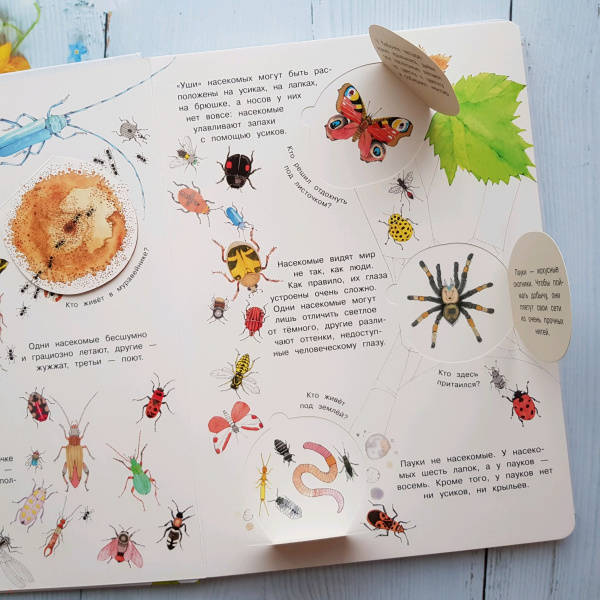 Кто живёт в муравейнике?
Одни насекомые бесшумно
и грациозно летают, другие —
жужжат, третьи — поют.
«Уши» насекомых могут быть рас-
положены на усиках, на лапках,
на брюшке, а носов у них
нет вовсе: насекомые
улавливают запахи
с помощью усиков.
Кто решил отдохнуть
под листочком?
Насекомые видят мир
не так, как люди.
Как правило, их глаза
устроены очень сложно.
Одни насекомые могут
лишь отличить светлое
от тёмного, другие разли-
чают оттенки, недоступ-
ные человеческому глазу.
Пауки — искусные
охотники. Чтобы пой-
мать добычу, они
плетут свои сети
из очень прочных
нитей.
Кто здесь
притаился?
Кто живёт
под землёй?
Пауки не насекомые. У насеко-
мых шесть лапок, а у пауков —
восемь. Кроме того, у пауков нет
ни усиков, ни крыльев.